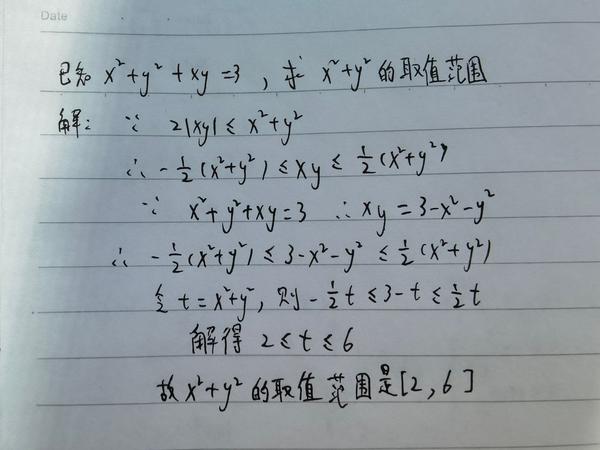 Date
已知 x²+y²+xy=3，求 x²+y² 的取值范围
解：∵ 2|xy| ≤ x²+y²
∴ -½(x²+y²) ≤ xy ≤ ½(x²+y²)
∵ x²+y²+xy=3 ∴ xy=3-x²-y²
∴ -½(x²+y²) ≤ 3-x²-y² ≤ ½(x²+y²)
令 t=x²+y²，则 -½t ≤ 3-t ≤ ½t
解得 2 ≤ t ≤ 6
故 x²+y² 的取值范围是[2，6]